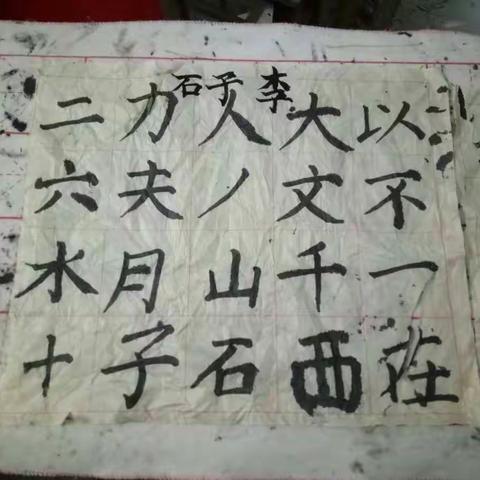 石子 李
二力人大以
六夫丿文不
水月山千一
十子石西在